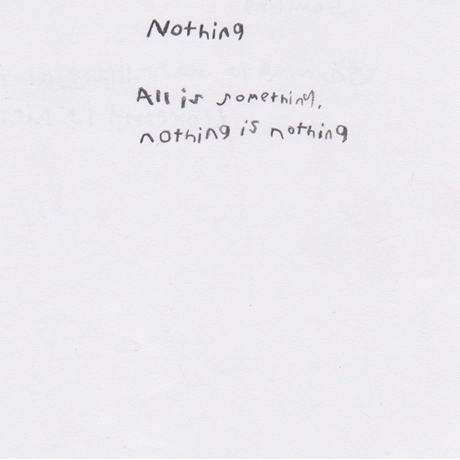 Nothing
All is something,
nothing is nothing